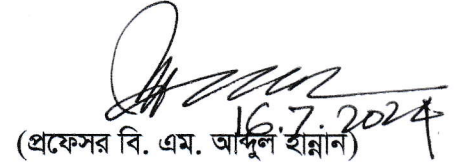 16.7.2024
(প্রফেসর বি. এম. আব্দুল হান্নান)